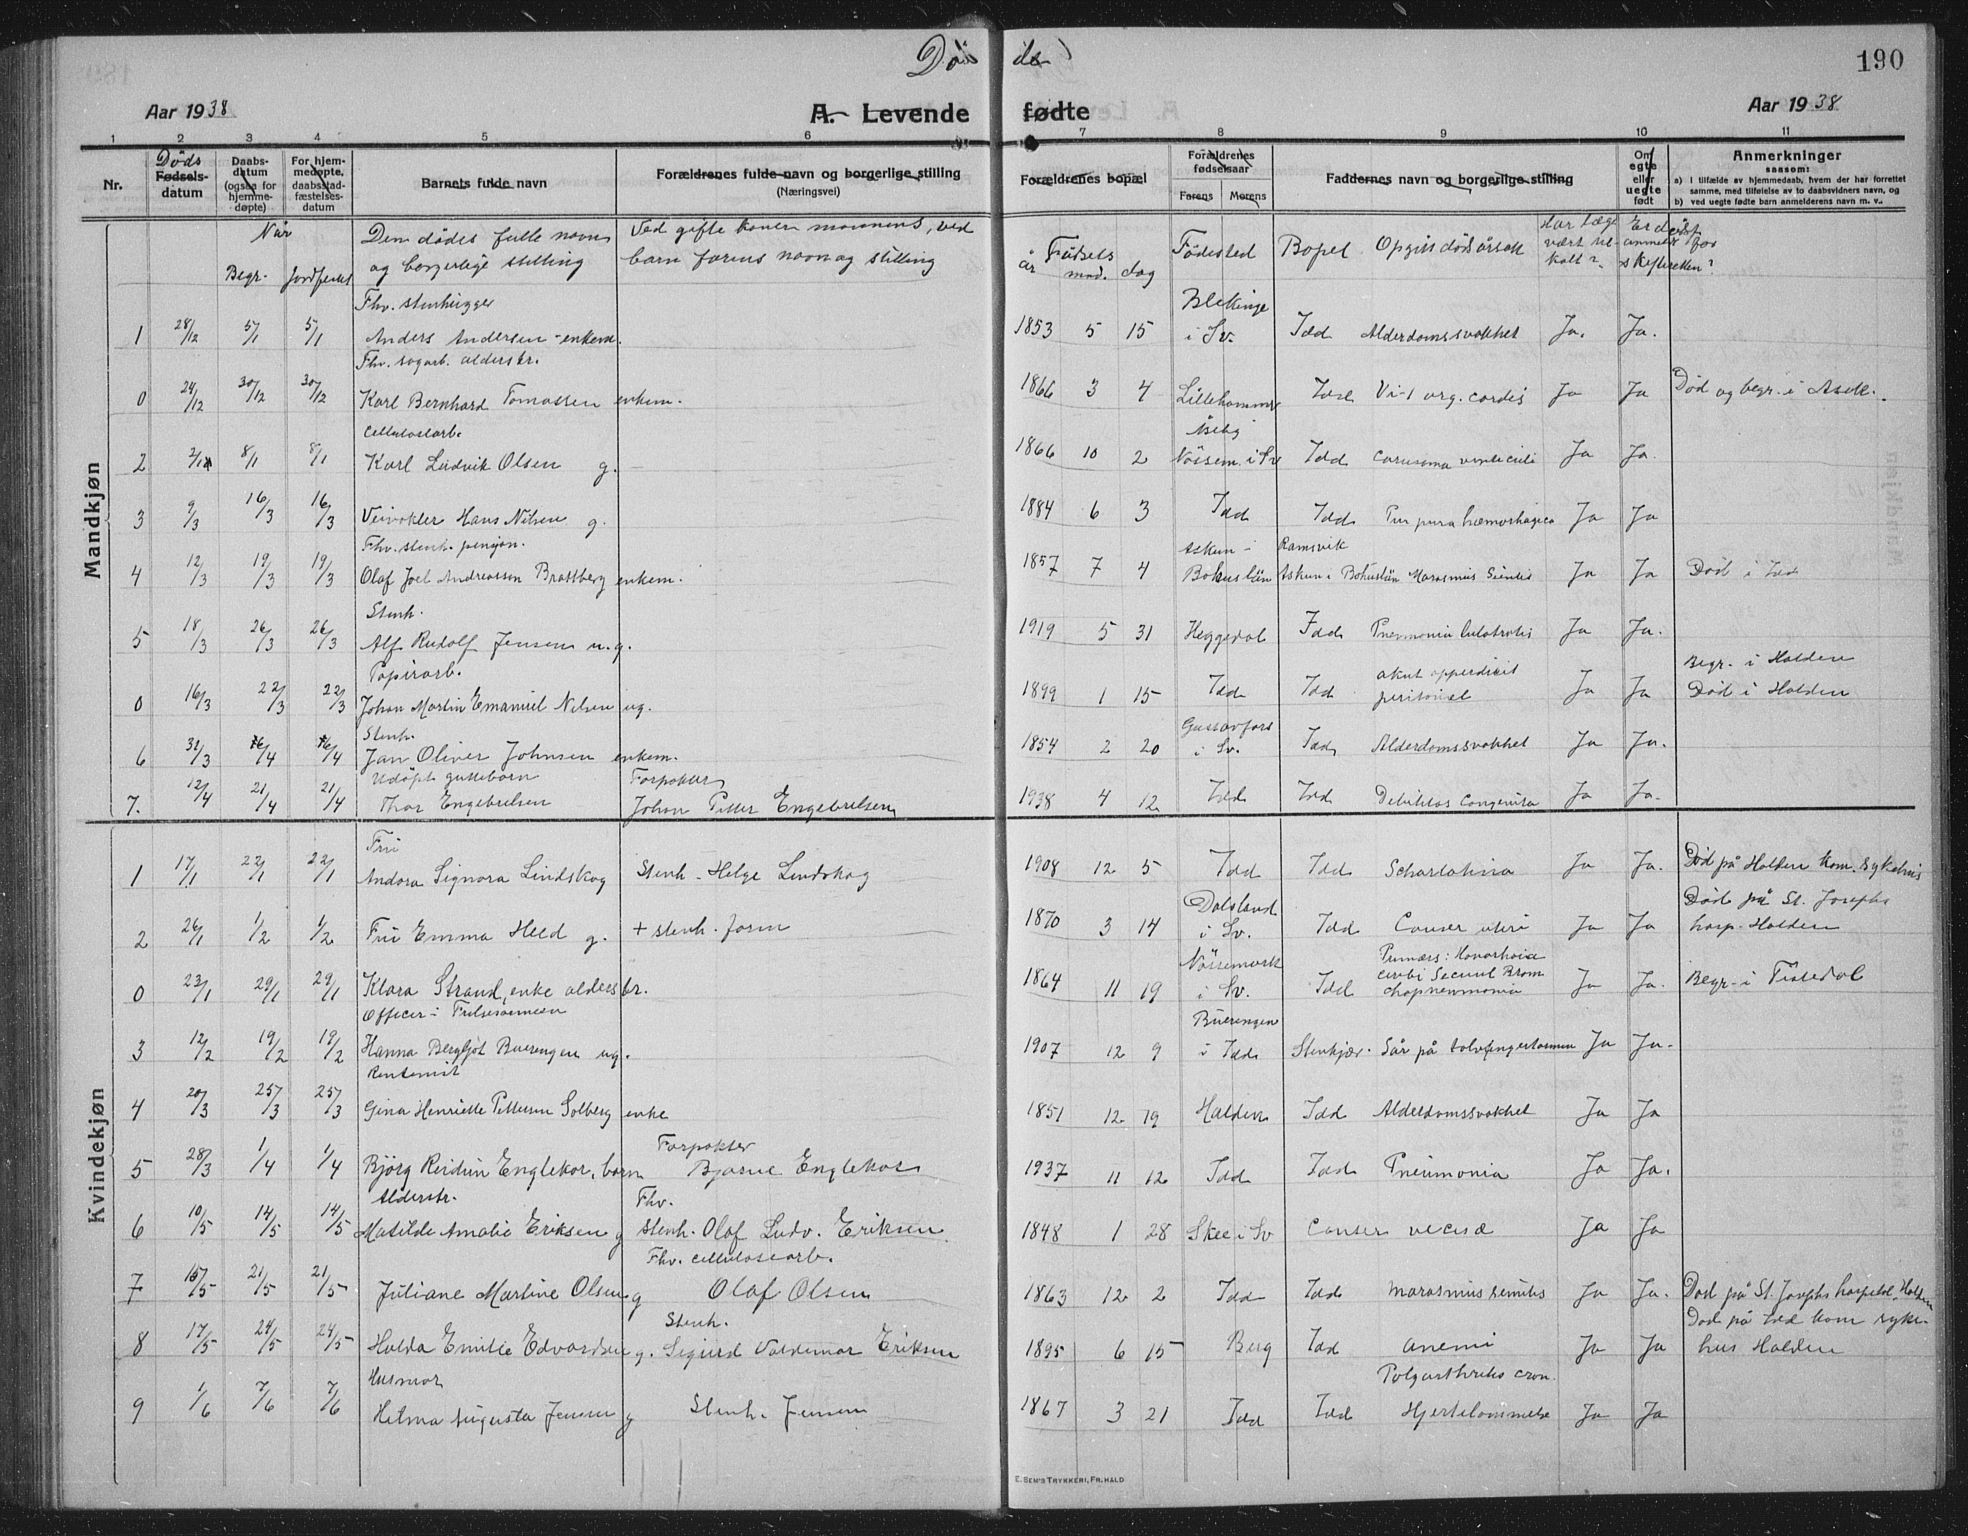 Døde
190
Aar 1938
A. Levende fødte
Aar 1938
1 2 3 4 5 6 7 8 9 10 11
Nr.
Døds
Fødsels-
datum
Daabs-
datum
(ogsaa for
hjemme-
døpte)
For hjem-
medøpte,
daabsstad-
fæstelses-
datum
Barnets fulde navn
Forældrenes fulde navn og borgerlige stilling
(Næringsvei)
Forældrenes bopæl
Forældrenes
fødselsaar
Farens Morens
Faddernes navn og borgerlige stilling
Om
egte
eller
uegte
født
Anmerkninger
saasom:
a) I tilfælde av hjemmedaab, hvem der har forrettet
samme, med tilføielse av to daabsvidners navn, og
b) ved uegte fødte barn anmelderens navn m. v.
Når
Begr. Jordfestet
Den dødes fulle navn
og borgerlige stilling
Ved gifte koner mannens, ved
barn farens navn og stilling
Fødsels
år mnd. dag
Fødested
Bopel
Opgitt dødsårsak
Har læge
vært til-
kalt?
Er dødsf.
anmeldt for
skifteretten?
Mandkjøn
Fhv. stenhugger
1 28/12 5/1 5/1 Anders Andersen - enkem. 1853 5 15 Blekinge i Sv. Idd Alderdomssvakhet Ja. Ja.
Fhv. sagarb. alderstr.
0 24/12 30/12 30/12 Karl Bernhard Tomassen enkem. 1866 3 4 Lillehammer Idd Vi-1 org. cordis Ja Ja Død og begr. i Asak.
Cellulosearb.
2 2/1 8/1 8/1 Karl Ludvik Olsen g. 1866 10 2 Nössem. i Sv Idd Ja Ja.
3 9/3 16/3 16/3 Veivokter Hans Nilsen g. 1884 6 3 Idd Idd Purpura hæmorhagica Ja Ja
Fhv. stenh. pensjon.
4 12/3 19/3 19/3 Olaf Joel Andreassen Brattberg enkem. 1857 7 4 Askum i Bohuslän Ramsvik Askum i Bohuslän Marasmus Senilis Ja Ja Død i Idd
Stenh.
5 18/3 26/3 26/3 Alf Rudolf Jensen u.g. 1919 5 31 Heggedal Idd Pneumonia Ja Ja.
Papirarb.
0 16/3 22/3 22/3 Johan Martin Emanuel Nilsen ug. 1899 1 15 Idd Idd akut appendicit peritonit Ja Ja Begr. i Halden Død i Halden
Stenh.
6 31/3 6/4 6/4 Jan Oliver Johnsen enkem. 1854 2 20 Gustavfors i Sv. Idd Alderdomssvakhet Ja Ja.
Udöpt guttebarn
7. 12/4 21/4 21/4 Thor Engebretsen Forpakter Johan Petter Engebretsen 1938 4 12 Idd Idd Debilitas Congenita Ja Ja.
Kvindekjøn
Fru
1 17/1 22/1 22/1 Andora Signora Lindskog Stenh. Helge Lindskog 1908 12 5 Idd Idd Scharlakina Ja Ja. Död på Halden kom. sykehus
2 26/1 1/2 1/2 Fru Emma Heed g. + stenh. form 1870 3 14 Dalsland i Sv. Idd Canser uteri Ja Ja Död på St. Josephs hosp. Halden
0 23/1 29/1 29/1 Klara Strand, enke alderstr. 1864 11 19 Nössemark i Sv. Idd Ja Ja. Begr. i Tistedal
Officer i Frelsesarmeen
3 12/2 19/2 19/2 Hanna Bergljot Bueringen ug. 1907 12 9 Bueringen i Idd Stenkjær. Sår på tolvfingertarmen Ja Ja.
Rentenist
4 20/3 25/3 25/3 Gina Henriette Pettersen Solberg enke 1851 12 19 Halden Idd Alderdomssvakhet Ja Ja
5 28/3 1/4 1/4 Bjørg Reidun Englekor, barn Forpakter Bjarne Englekor 1937 11 12 Idd Idd Pneumonia Ja Ja.
Alderstr.
6 10/5 14/5 14/5 Matilde Amalie Eriksen g Fhv. Stenh. Olaf Ludv. Eriksen 1848 1 28 Skee i Sv Canser vecicæ Ja Ja
7 15/5 21/5 21/5 Juliane Martine Olsen g Fhv. cellulosearb. Olaf Olsen 1863 12 2 Idd Idd marasmus senilis Ja Ja. Død på St. Josephs hospital, Halden
8 17/5 24/5 24/5 Halda Emilie Edvardsen g. Stenh. Sigurd Valdemar Eriksen 1895 6 15 Berg Idd anemi Ja Ja Død på Idd kom syke-hus Halden
Husmor
9 1/6 7/6 7/6 Hilma Augusta Jensen g Stenh. Jensen 1867 3 21 Idd Idd Polyarthritis cron. Hjertelammelse Ja Ja
E. Sem's Trykkeri, Fr.hald